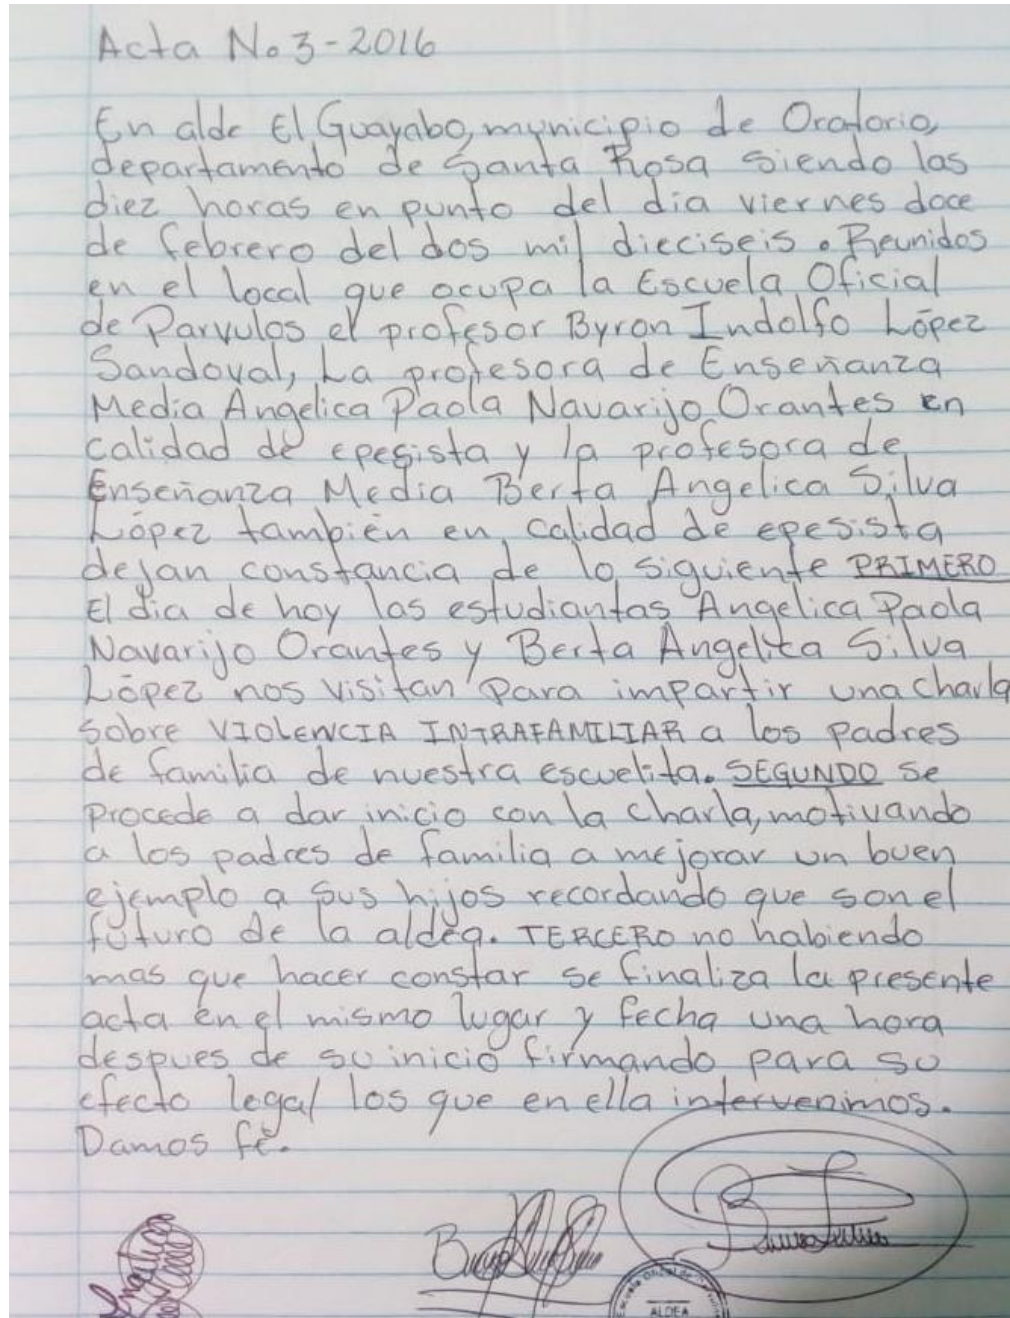 Acta No. 3-2016
En alde El Guayabo, municipio de Oratorio,
departamento de Santa Rosa siendo las
diez horas en punto del dia viernes doce
de febrero del dos mil dieciseis. Reunidos
en el local que ocupa la Escuela Oficial
de Parvulos el profesor Byron Indolfo López
Sandoval, La profesora de Enseñanza
Media Angelica Paola Navarijo Orantes en
calidad de epesista y la profesora de
Enseñanza Media Berta Angelica Silva
López también en calidad de epesista
dejan constancia de lo siguiente PRIMERO
El dia de hoy las estudiantas Angelica Paola
Navarijo Orantes y Berta Angelita Silva
López nos visitan para impartir una charla
sobre VIOLENCIA INTRAFAMILIAR a los padres
de familia de nuestra escuelita. SEGUNDO se
procede a dar inicio con la charla, motivando
a los padres de familia a mejorar un buen
ejemplo a sus hijos recordando que son el
futuro de la aldea. TERCERO no habiendo
mas que hacer constar se finaliza la presente
acta en el mismo lugar y fecha una hora
despues de su inicio firmando para su
efecto legal los que en ella intervenimos.
Damos fé.
Escuela Oficial de
ALDEA